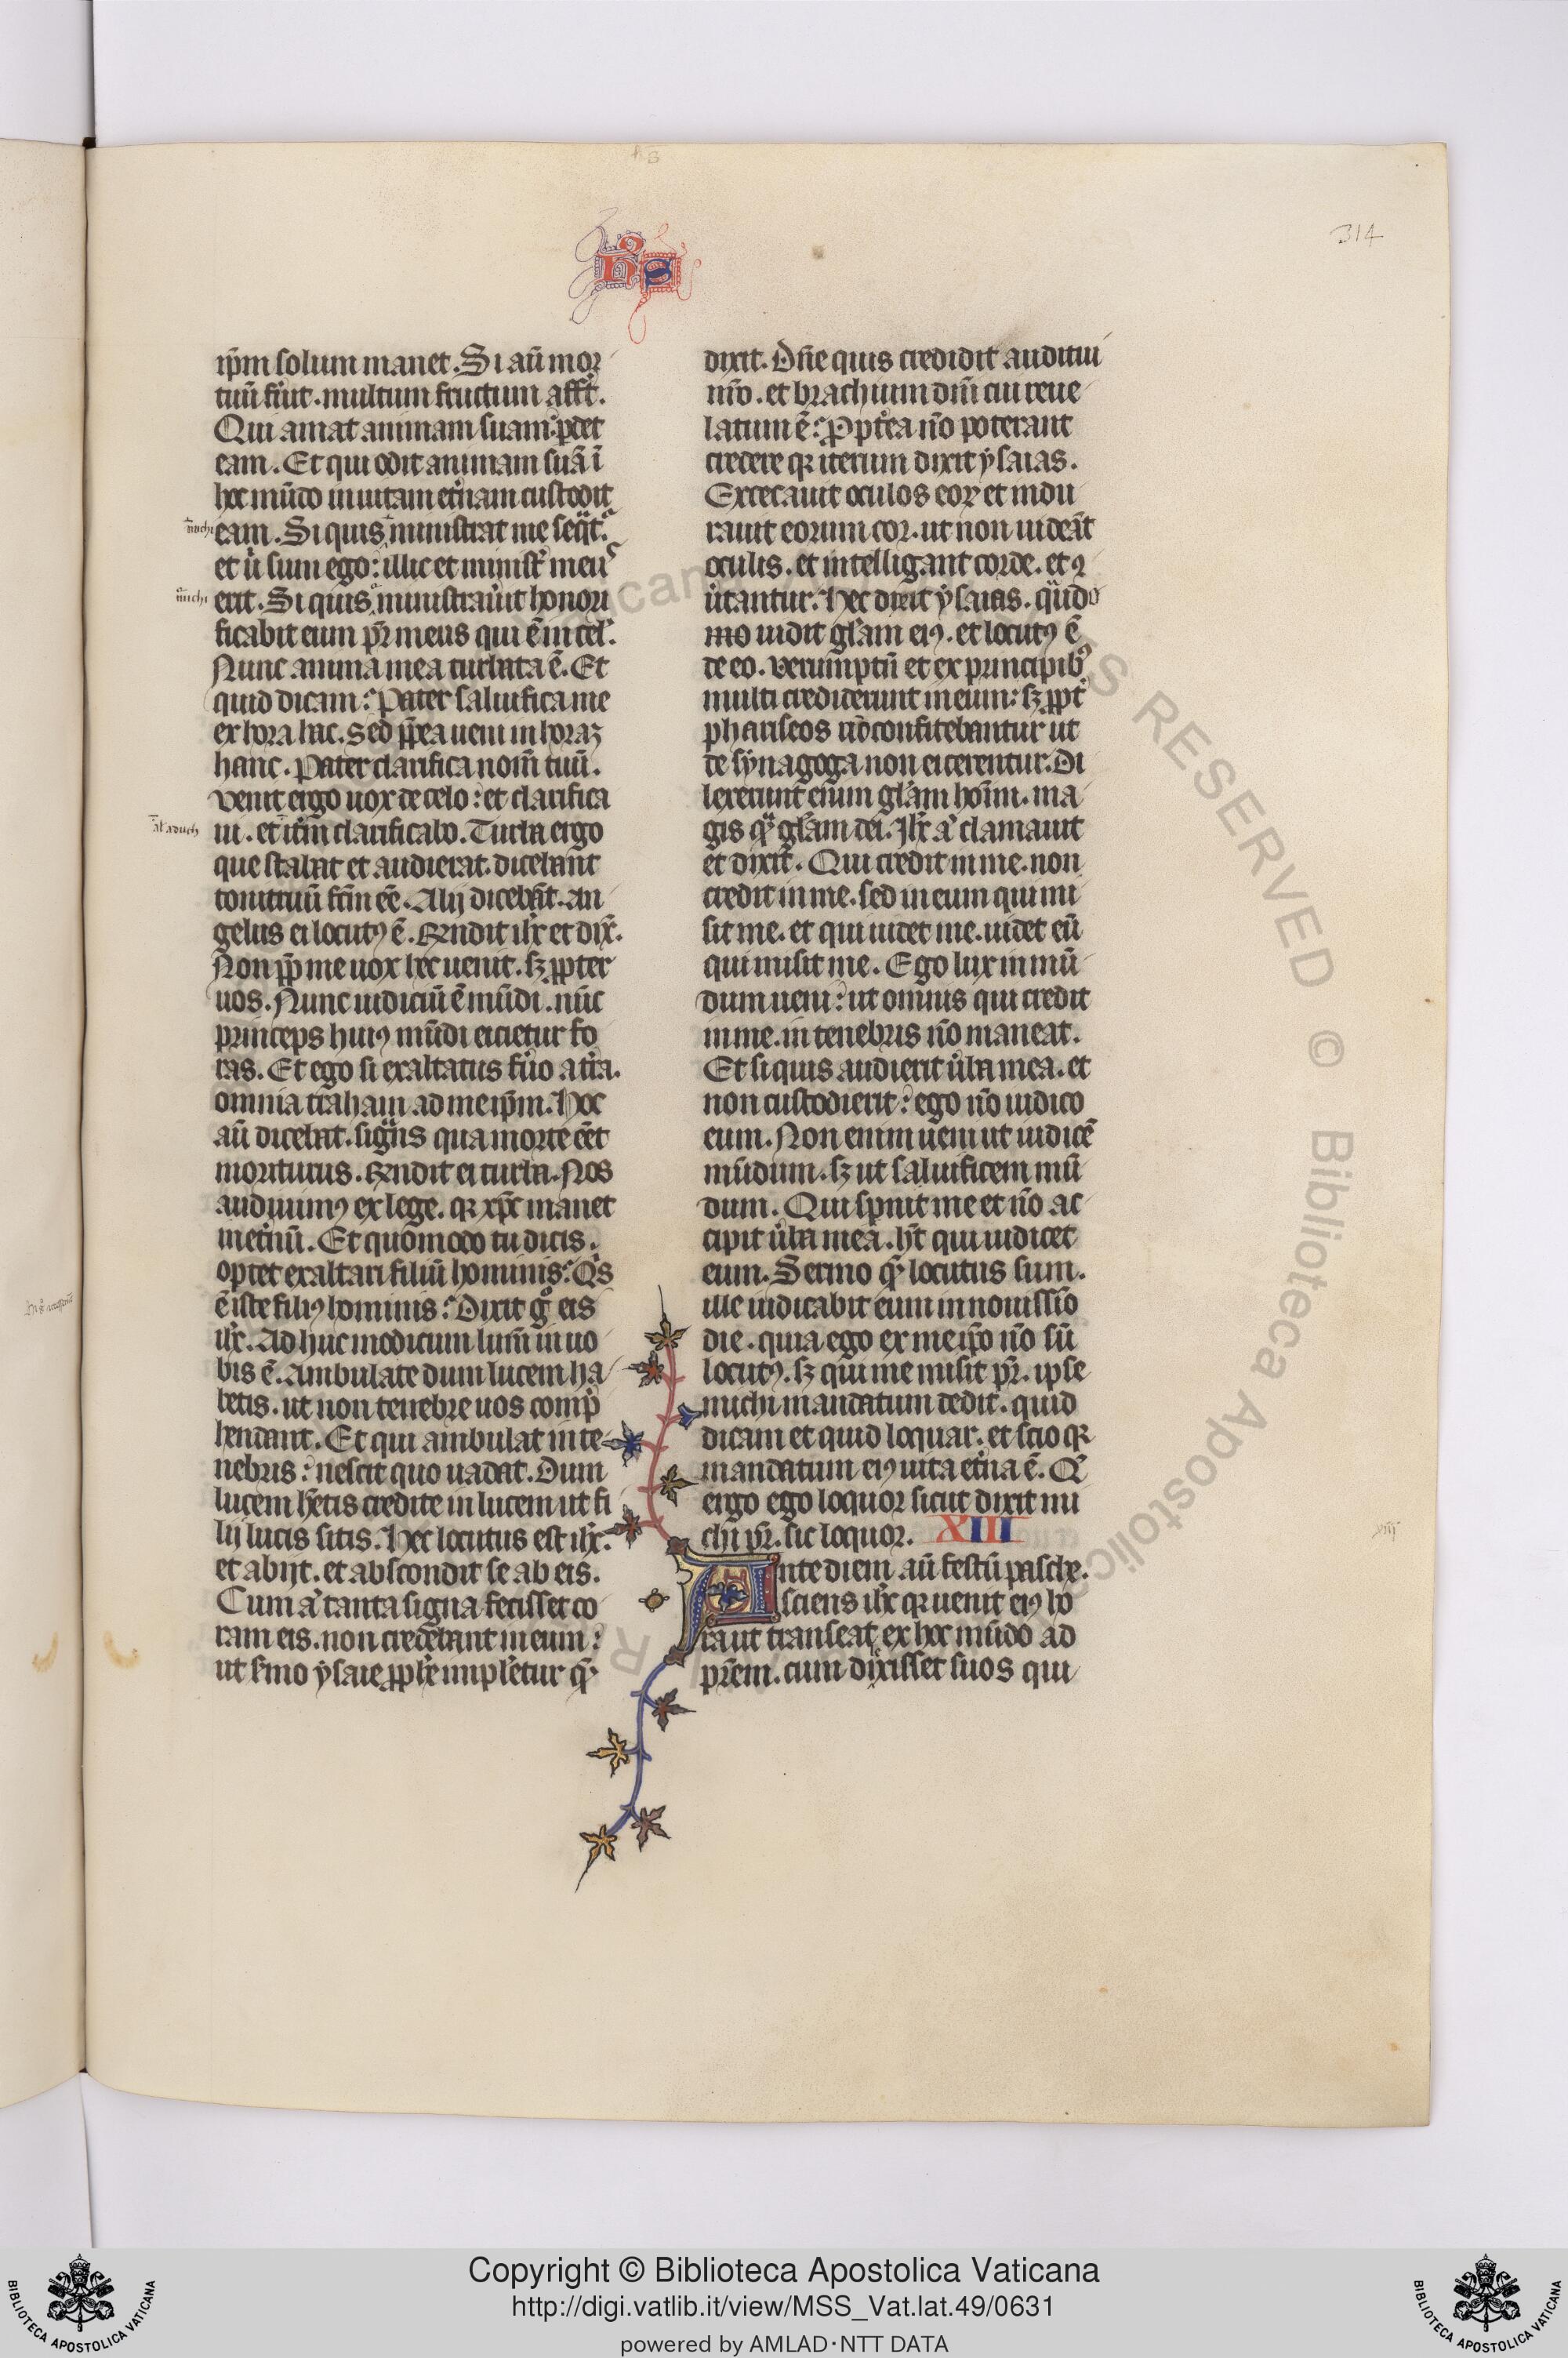 hs
314
ip̄m solum manet. Si aū mor
tuū fu̇it. multum fructum affe͛t.
Qui amat animam suam: ꝑdet
eam. Et qui odit animam suā ī
hoc mūdo in uitam et͛nam custodit
eam. Si quis ministrat me seqͥt᷑.
et u͛ sum ego: illic et minist͛ meus
erit. Si quis ministrau͛it honori
ficabit eum pr̄ meus qui ē in cel̓.
Nunc anima mea turbata ē. Et
quid dicam? Pater saluifica me
ex hora hac. Sed ꝓp̄ea ueni in horaꝫ
hanc. Pater clarifica nom̄ tuū.
Venit ergo uox de celo: et clarifica
ui. et it͛m clarificabo. Turba ergo
que stabat et audierat. dicebant
tonitruū fc̄m eē. Alij dicebāt. an
gelus ei locutꝰ ē. Rn̄dit ih̄c et dix̄.
Non ꝓp̄ me uox hec uenit. sꝫ ꝓpter
uos. Nunc iudiciū ē mūdi. nūc
princeps huiꝰ mūdi eicietur fo
ras. Et ego si exaltatus fu͛o a t͛ra.
omnia traham ad meip̄m. Hoc
aū dicebat. sigͥns qua morte eēt
moriturus. Rn̄dit ei turba. Nos
audiuimꝰ ex lege. qꝛ xp̄c manet
in et͛nū. Et quomodo tu dicis.
optet exaltari filiū hominis? Qͥs
ē iste filiꝰ hominis? Dixit gͦ eis
ih̄c. Ad huc modicum lum̄ in uo
bis ē. Ambulate dum lucem ha
betis. ut non tenebre uos comp̄
hendant. Et qui ambulat in te
nebris: nescit quo uadat. Dum
lucem hētis credite in lucem ut fi
lij lucis sitis. Hec locutus est ih̄c.
et abijt. et abscondit se ab eis.
Cum aͫ tanta signa fecisset co
ram eis. non credebant in eum:
ut s͛mo ysaie ꝓph̄e impl̓etur qͤ
dixit. Dn̄e quis credidit auditui
nr̄o. et brachium dn̄i cui reue
latum ē? Pp̄t͛ea nō poterant
credere qꝛ iterum dixit ysaias.
Excecauit oculos eoꝝ et indu
rauit eorum cor. ut non uideāt
oculis. et intelligant corde. et ꝯ
u͛tantur. Hec dixit ysaias. qͣndo
mo uidit gl̓am eiꝰ. et locutꝰ ē
de eo. Verumptū et ex principibꝰ
multi crediderunt in eum: sꝫ ꝓpt͛
phariseos nō confitebantur ut
de synagoga non eicerentur. Di
lexerunt enim gl̓am hoīm. ma
gis qͣ gl̓am dei. Ih̄c aͫ clamauit
et dixit. Qui credit in me. non
credit in me. sed in eum qui mi
sit me. et qui uidet me. uidet eū
qui misit me. Ego lux in mū
dum ueni: ut omnis qui credit
in me. in tenebris nō maneat.
Et si quis audierit u͛ba mea. et
non custodierit: ego nō iudico
eum. Non enim ueni ut iudicē
mūdum. sꝫ ut saluificem mū
dum. Qui sp͛nit me et nō ac
cipit u͛ba mea. hт̄ qui iudicet
eum. Sermo qͤ locutus sum.
ille iudicabit eum in nouissīo
die. quia ego ex meip̄o nō sū
locutꝰ. sꝫ qui me misit pr̄. ipse
michi mandatum dedit. quid
dicam et quid loquar. et scio qꝛ
mandatum eiꝰ uita et͛na ē. Qͤ
ergo ego loquor sicut dixit mi
chi pr̄. sic loquor. XIII
Ante diem aū festū pasche.
sciens ih̄c qꝛ uenit eiꝰ ho
ra ut transeat ex hoc mūdo ad
pr̄em. cum dixisset suos qui
RESERVED © Biblioteca Apostolica
Copyright © Biblioteca Apostolica Vaticana
http://digi.vatlib.it/view/MSS_Vat.lat.49/0631
powered by AMLAD·NTT DATA
BIBLIOTECA APOSTOLICA VATICANA
BIBLIOTECA APOSTOLICA VATICANA